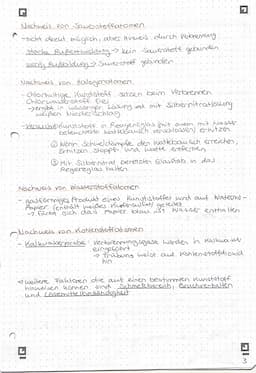 Nachweis von Sauerstoffatomen
- nicht direkt möglich, aber Hinweis durch Verbrennung
starke Rußentwicklung -> kein Sauerstoff gebunden
wenig Rußbildung -> Sauerstoff gebunden
Nachweis von Halogenatomen
- chlorhaltige Kunststoff setzen beim Verbrennen
Chlorwasserstoff frei
-> ergibt in wässriger Lösung mit Silbernitratlösung
weißen Niederschlag
- Versuch: Kunststoffe in Reagenzglas (mit einem mit Wasser
befeuchteten Wattebausch verschlossen) erhitzen
① Wenn Schwelldämpfe den Wattebausch erreichen,
Erhitzen stoppen und Watte entfernen
② Mit Silbernitrat benetzten Glasstab in das
Reagenzglas halten
Nachweis von Wasserstoffatomen
- gasförmiges Produkt eines Kunststoffes wird auf Watesmo-
Papier (enthält weißes Kupfersulfat) geleitet
-> Färbt sich das Papier blau ist Wasser enthalten
Nachweis von Kohlenstoffatomen
- Kalkwasserprobe: Verbrennungsgase werden in Kalkwasser
eingeführt
-> Trübung weist auf Kohlenstoffdioxid
hin
-> Weitere Faktoren die auf einen bestimmten Kunststoff
hinweisen können sind Schmelzbereich, Bruchverhalten
und Lösemittelbeständigkeit
3